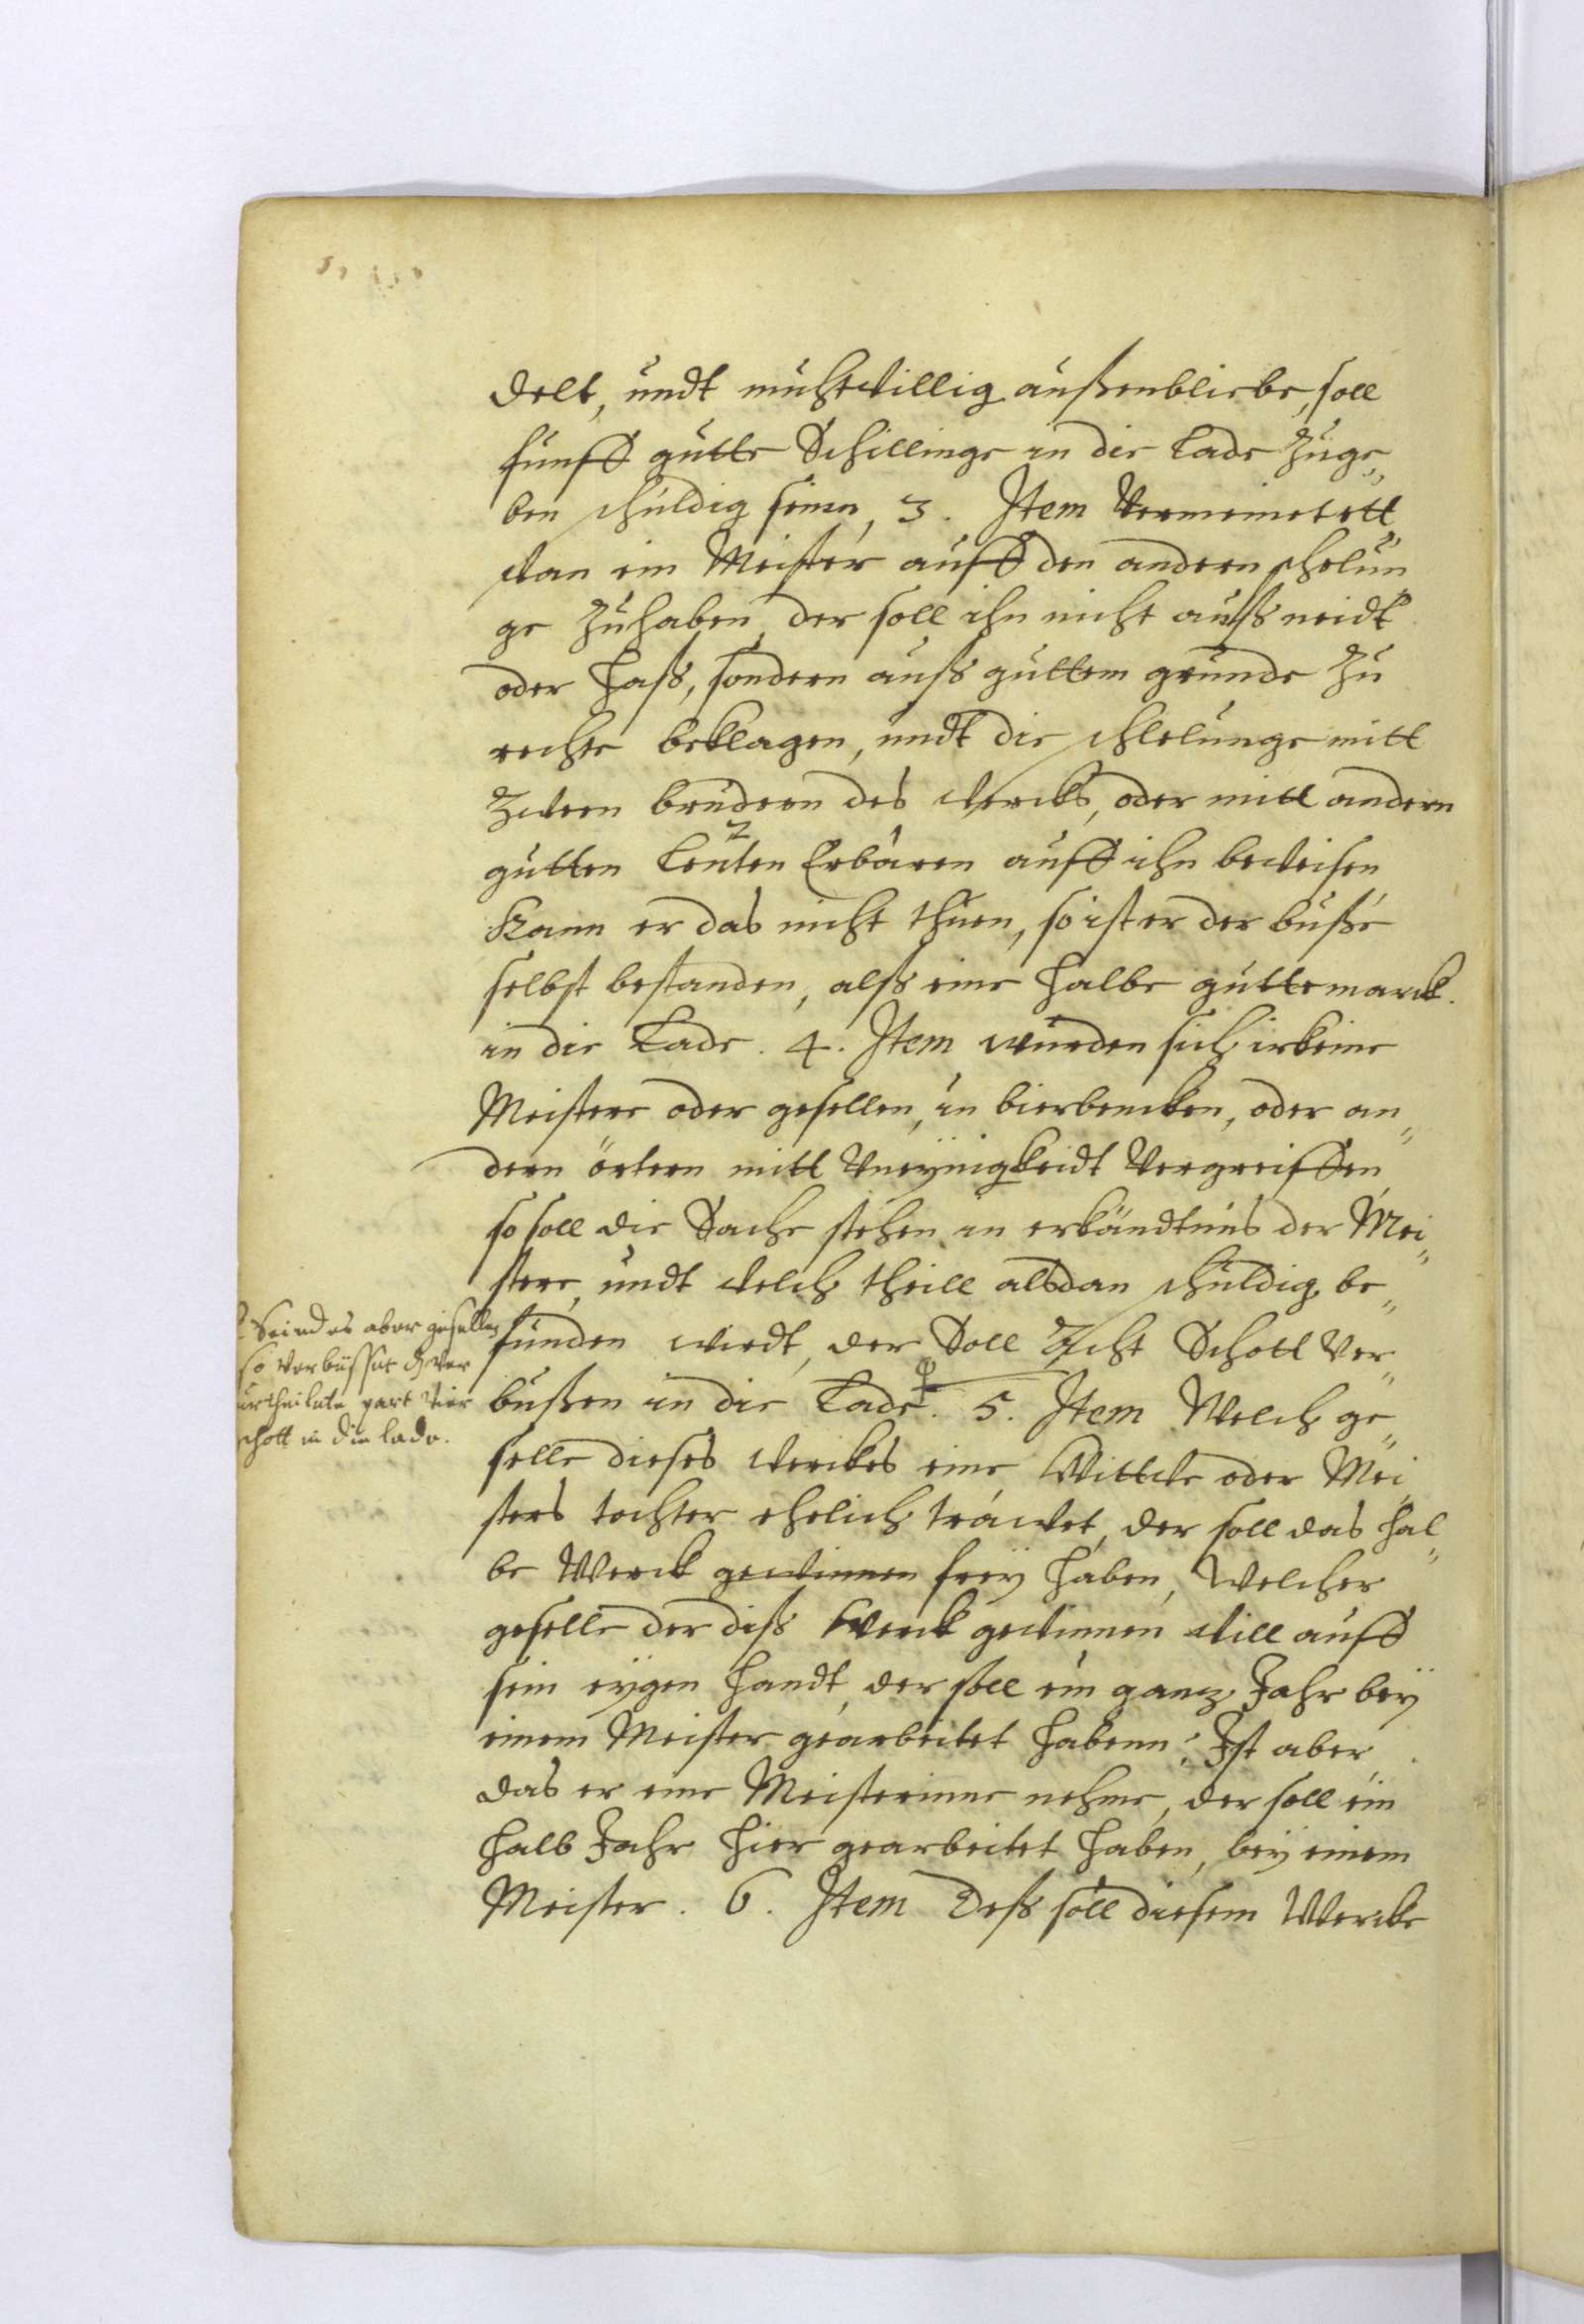 delt, undt muhtwillig außenbliebe, soll
funff gutte Schillinge in die Lade zuge„
ben schuldig seinn, 3. Item Vermeinet ett
wan ein Meister auff den andern schelun
ge zuhaben, der soll ihn nicht auß neidt
oder haß, sondern auß guttem grunde zu
rechte beklagen, undt die schelunge mitt
zween brudern des wercks, oder mitt andern
gutten 2 Leuten Erbaren auff ihn beweisen
Kann er das nicht thuen, so ist er der buße
selbst bestanden, alß eine halbe gutte marck.
in die Lade. 4. Item wurden sich irkeine
Meistere oder gesellen, in bierbencken, oder an„
dern örtern mitt Vneynigkeidt Vergreiffen
so soll die Sache stehen in erkändtnus der Mei„
stere, undt welch theill alsdan schuldig be„
funden wirdt, der Soll Acht Schott Ver„
bußen in die Lade. 5. Item Welch ge„
selle dieses werckes eine Wittwe oder Mei„
sters tochter ehelich trawet, der soll das hal„
be Werck gewinnen frey haben, Welcher
geselle der diß Werck gewinnen will auff
sein eygen handt, der soll ein gantz Jahr bey
einem Meister gearbeitet habenn: Ist aber
das er eine Meisterinne nehme, der soll ein
halb Jahr hier gearbeitet haben, bey einem
Meister. 6. Item Deß soll diesem Wercke
Seind es aber gesellen
so verbüsset d ver
urtheilete part vier
schott in die lade.